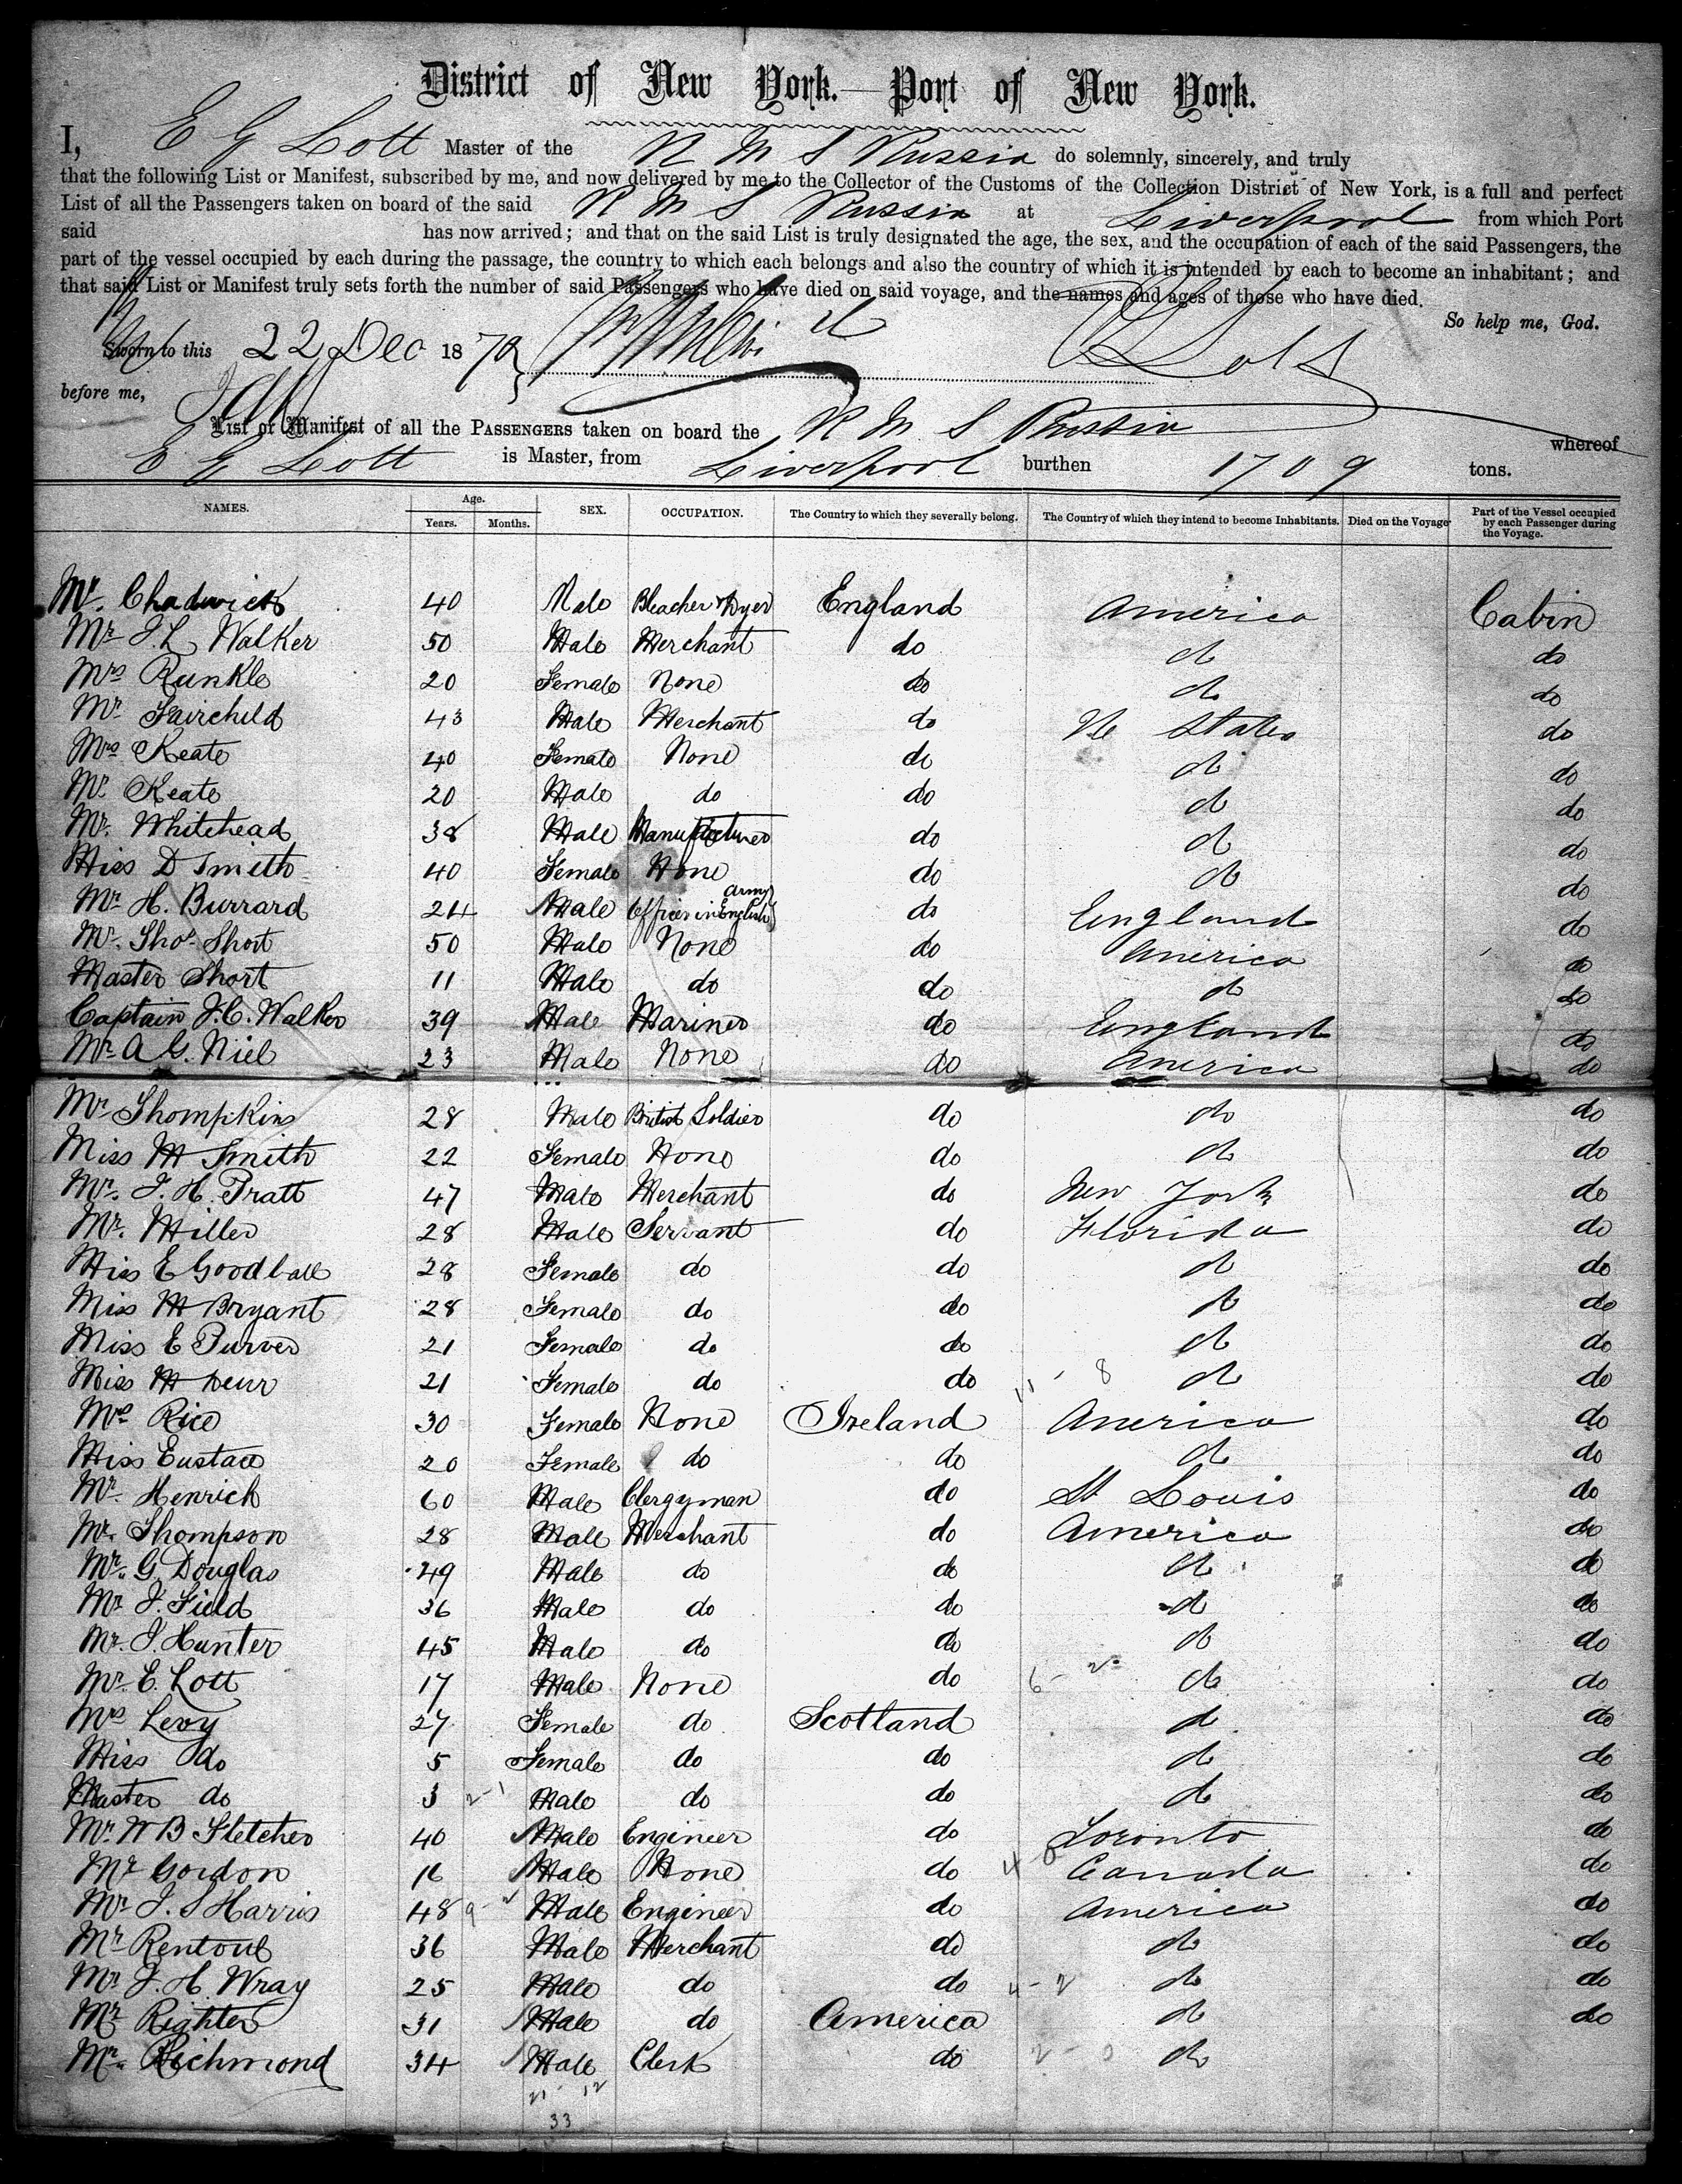 District of New York.—Port of New York.
I, E G Lott Master of the R M S Russia do solemnly, sincerely, and truly
that the following List or Manifest, subscribed by me, and now delivered by me to the Collector of the Customs of the Collection District of New York, is a full and perfect
List of all the Passengers taken on board of the said R M S Russia at Liverpool from which Port
said has now arrived; and that on the said List is truly designated the age, the sex, and the occupation of each of the said Passengers, the
part of the vessel occupied by each during the passage, the country to which each belongs and also the country of which it is intended by each to become an inhabitant; and
that said List or Manifest truly sets forth the number of said Passengers who have died on said voyage, and the names and ages of those who have died.
So help me, God.
Sworn to this 22 Dec 1870 Lott
before me,
List or Manifest of all the PASSENGERS taken on board the R M S Russia whereof
E G Lott is Master, from Liverpool burthen 1709 tons.
NAMES. Age. Years. Months. SEX. OCCUPATION. The Country to which they severally belong. The Country of which they intend to become Inhabitants. Died on the Voyage Part of the Vessel occupied by each Passenger during the Voyage.
Mr. Chadwick 40 Male Bleacher & Dyer England America Cabin
Mr J. L. Walker 50 Male Merchant do do do
Mrs Runkle 20 Female None do do do
Mr Fairchild 43 Male Merchant do States do
Mrs Keate 40 Female None do do do
Mr. Keate 20 Male do do do do
Mr. Whitehead 38 Male Manufacturer do do do
Miss D Smith 40 Female None do do do
Mr H. Burrard 24 Male Officer in English Army do England do
Mr. Thos. Short 50 Male None do America do
Master Short 11 Male do do do do
Captain J. C. Walker 39 Male Mariner do England do
Mr A G. Niel 23 Male None do America do
Mr Thompkins 28 Male British Soldier do do do
Miss M Smith 22 Female None do do do
Mr. J. H. Pratt 47 Male Merchant do New York do
Mr. Miller 28 Male Servant do Florida do
Miss E Goodball 28 Female do do do do
Miss M Bryant 28 Female do do do do
Miss E Purver 21 Female do do do do
Miss M 21 Female do do 11 - 8 do do
Mrs Rice 30 Female None Ireland America do
Miss Eustace 20 Female do do do do
Mr. Henrich 60 Male Clergyman do St Louis do
Mr. Thompson 28 Male Merchant do America do
Mr. G. Douglas 49 Male do do do do
Mr J. Field 36 Male do do do do
Mr. J. Hunter 45 Male do do do do
Mr. E. Lott 17 Male None do 6 - 2 do do
Mrs Levy 27 Female do Scotland do do
Miss do 5 Female do do do do
Master do 3 2-1 Male do do do do
Mr. W B Fletcher 40 Male Engineer do Toronto do
Mr Gordon 16 Male None do 4 0 Canada do
Mr J. S Harris 48 9- Male Engineer do America do
Mr Rentoul 36 Male Merchant do do do
Mr J. H. Wray 25 Male do do 4 - 2 do do
Mr Righter 31 Male do America do do
Mr. Richmond 34 Male Clerk do 2 - 0 do
21 12
33